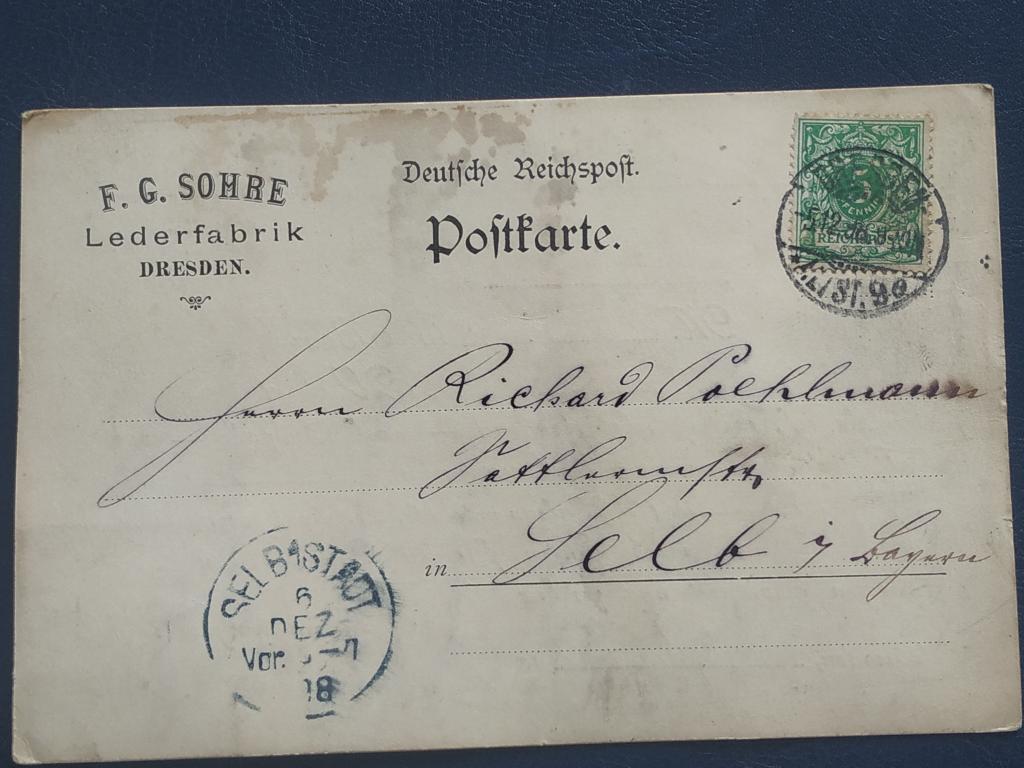 F. G. SOHRE
Lederfabrik
DRESDEN.
Deutsche Reichspost.
Postkarte.
5
PFENNIG
REICHSPOST
Herrn Richard Poehlmann
Sattlermstr.
in Selb i/ Bayern
SELB STADT
6
DEZ
Vor.
98